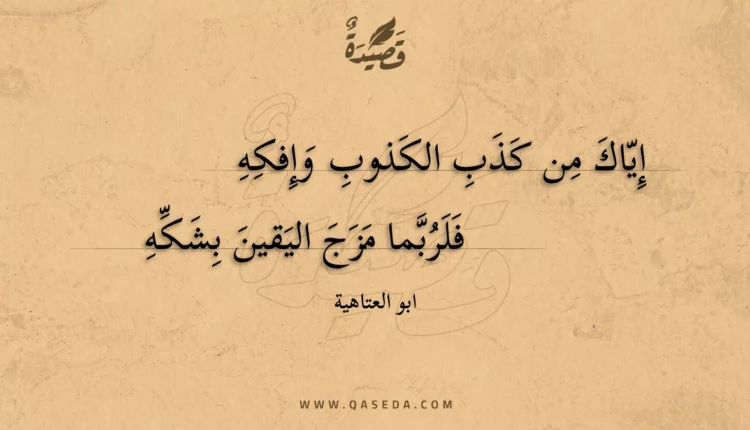 قَصِيْدَةٌ
إِيّاكَ مِن كَذَبِ الكَذوبِ وَإِفكِهِ
فَلَرُبَّما مَزَجَ اليَقينَ بِشَكِّهِ
ابو العتاهية
WWW.QASEDA.COM